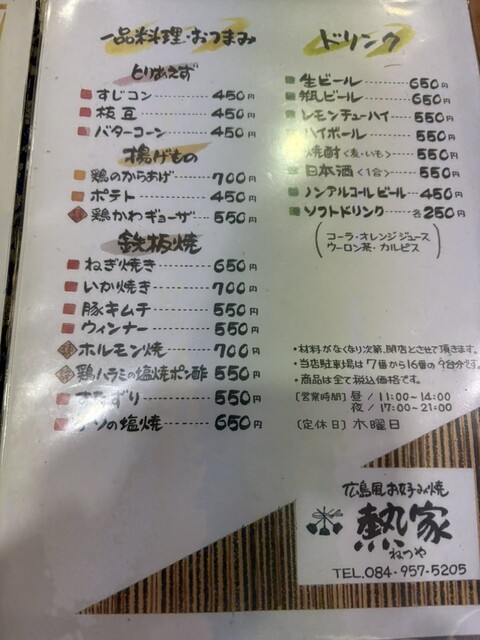 一品料理・おつまみ
とりあえず
すじコン 450円
枝豆 450円
バターコーン 450円
揚げもの
鶏のからあげ 700円
ポテト 450円
鶏かわギョーザ 550円
鉄板焼
ねぎ焼き 650円
いか焼き 700円
豚キムチ 550円
ウィンナー 550円
ホルモン焼 700円
鶏ハラミの塩焼ポン酢 550円
ずり 550円
の塩焼 650円
ドリンク
生ビール 650円
瓶ビール 650円
レモンチューハイ 550円
ハイボール 550円
焼酎〈麦・いも〉 550円
日本酒〈1合〉 550円
ノンアルコールビール 450円
ソフトドリンク 各250円
(コーラ・オレンジジュース
ウーロン茶・カルピス)
・材料がなくなり次第、閉店とさせて頂きます。
・当店駐車場は7番から16番の9台分です。
・商品は全て税込価格です。
[営業時間] 昼 / 11:00~14:00
夜 / 17:00~21:00
[定休日] 木曜日
広島風お好み焼
熱家
ねつや
TEL.084-957-5205